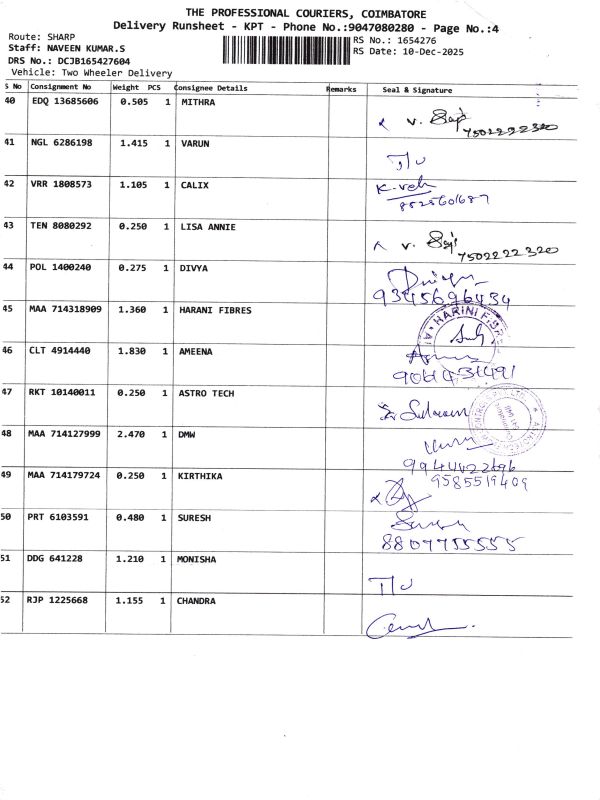 THE PROFESSIONAL COURIERS, COIMBATORE
Delivery Runsheet - KPT - Phone No.:9047080280 - Page No.:4
Route: SHARP
RS No.: 1654276
Staff: NAVEEN KUMAR.S
RS Date: 10-Dec-2025
DRS No.: DCJB165427604
Vehicle: Two Wheeler Delivery
S No Consignment No Weight PCS Consignee Details Remarks Seal & Signature
40 EDQ 13685606 0.505 1 MITHRA
7502222320
41 NGL 6286198 1.415 1 VARUN
42 VRR 1808573 1.105 1 CALIX
8825601687
43 TEN 8080292 0.250 1 LISA ANNIE
7502222320
44 POL 1400240 0.275 1 DIVYA
9345696434
45 MAA 714318909 1.360 1 HARANI FIBRES
46 CLT 4914440 1.830 1 AMEENA
47 RKT 10140011 0.250 1 ASTRO TECH
48 MAA 714127999 2.470 1 DMW
49 MAA 714179724 0.250 1 KIRTHIKA
9585519409
50 PRT 6103591 0.480 1 SURESH
51 DDG 641228 1.210 1 MONISHA
52 RJP 1225668 1.155 1 CHANDRA